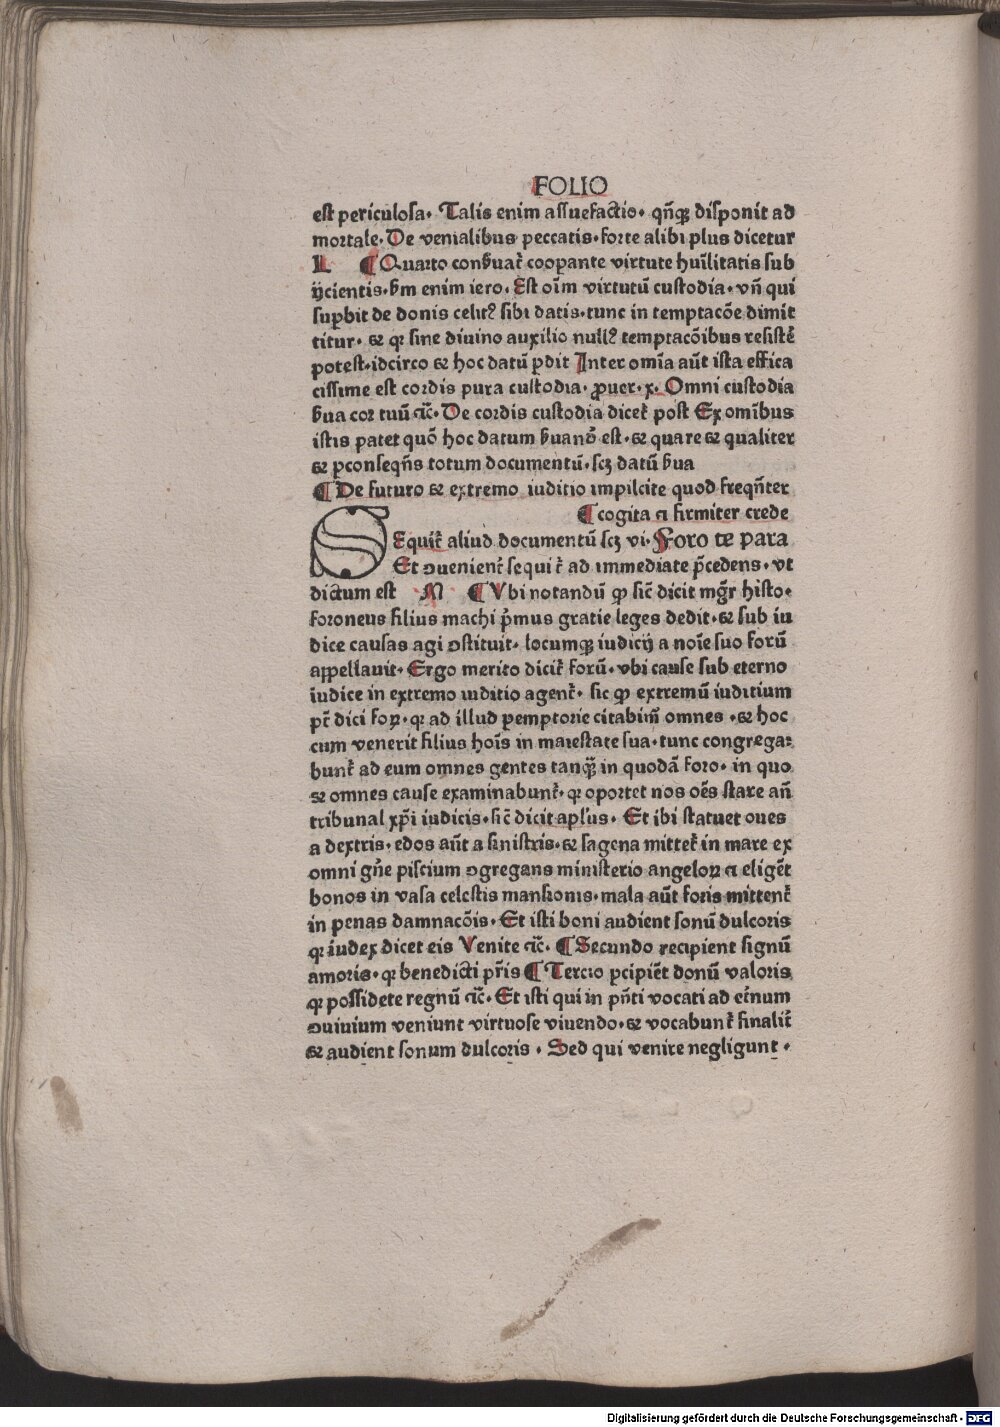 FOLIO
est periculosa. Talis enim assuefactio. qñqꝫ disponit ad
mortale. De venialibus peccatis. forte alibi plus dicetur
L ¶ Quarto conẜuat᷑ coopante virtute hui̅litatis sub
ijcientis. ẜm enim iero. Est oi̅m virtutū custodia. vñ qui
sup̱bit de donis celit⁹ sibi datis. tunc in temptacōe dimit
titur. ⁊ qꝛ sine diuino auxilio null⁹ temptacōibus resistē
potest. idcirco ⁊ hoc datū ꝓdit Inter omi̅a aūt ista effica
cissime est cordis pura custodia. ꝓuer. x. Omni custodia
ẜua cor tuū ⁊c̄. De cordis custodia dicet᷑ post Ex omi̅bus
istis patet quō hoc datum ẜuand̄ est. ⁊ quare ⁊ qualiter
⁊ ꝑconseqñs totum documentū. scꝫ datū ẜua
¶ De futuro ⁊ extremo iuditio impilcite quod freqn̄ter
¶ cogita ⁊ firmiter crede
SEquit᷑ aliud documentū scꝫ vi. Foro te para
Et ↄuenient᷑ sequit᷑ ad immediate p̄cedens. vt
dictum est M ¶ Vbi notandū ꝙ sic̄ dicit mg̅r histo.
foroneus filius machi p̄mus gratie leges dedit. ⁊ sub iu
dice causas agi ↄstituit. locumqꝫ iudicij a noi̅e suo forū
appellauit. Ergo merito dicit᷑ forū. vbi cause sub eterno
iudice in extremo iuditio agent᷑. sic ꝙ extremū iuditium
pt̄ dici foꝝ. qꝛ ad illud ꝑemptorie citabim̄ omnes. ⁊ hoc
cum venerit filius hoi̅s in maiestate sua. tunc congrega-
bunt᷑ ad eum omnes gentes tanqꝫ̄ in quodā foro. in quo
⁊ omnes cause examinabunt᷑. qꝛ oportet nos oēs stare añ
tribunal xp̄i iudicis. sic̄ dicit apl̄us. Et ibi statuet oues
a dextris. edos aūt a sinistris. ⁊ sagena mittet᷑ in mare ex
omni gn̄e piscium ↄgregans ministerio angeloꝝ ⁊ eligēt
bonos in vasa celestis mansionis. mala aūt foris mittent᷑
in penas damnacōis. Et isti boni audient sonū dulcoris
qꝛ iudex dicet eis Venite ⁊c̄. ¶ Secundo recipient signū
amoris. qꝛ benedicti pr̄is ¶ Tercio ꝑcipiēt donū valoris
qꝛ possidete regnū ⁊c̄. Et isti qui in pn̄ti vocati ad et̄num
ↄuiuium veniunt virtuose viuendo. ⁊ vocabunt᷑ finalit᷑
⁊ audient sonum dulcoris. Sed qui venire negligunt.
Digitalisierung gefördert durch die Deutsche Forschungsgemeinschaft - DFG